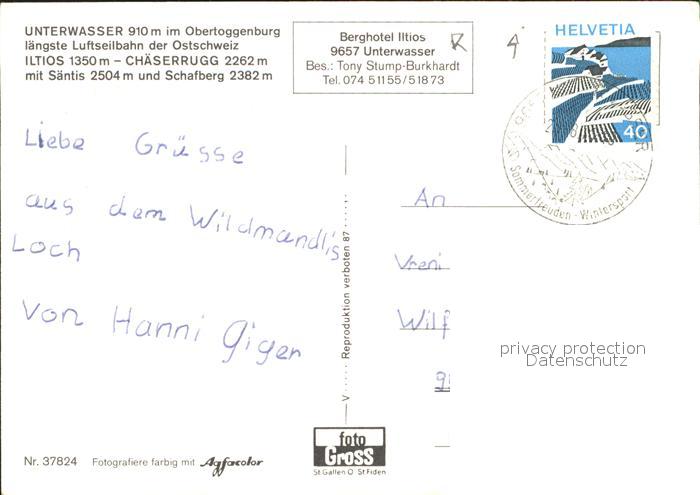 UNTERWASSER 910 m im Obertoggenburg
längste Luftseilbahn der Ostschweiz
ILTIOS 1350 m – CHÄSERRUGG 2262 m
mit Säntis 2504 m und Schafberg 2382 m
Berghotel Iltios
9657 Unterwasser
Bes.: Tony Stump-Burkhardt
Tel. 074 511 55/518 73
HELVETIA
40
Sommerfreuden - Wintersport
Liebe Grüsse
aus dem Wildmandlis
Loch
von Hanni Giger
Reproduktion verboten 87
V
An
Vreni
Wilf
privacy protection
Datenschutz
foto
Gross
St.Gallen O St Fiden
Nr. 37824 Fotografiere farbig mit Agfacolor